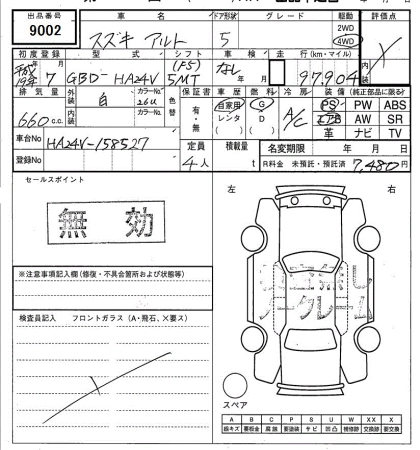 出品番号 車名 ドア形状 グレード 駆動 評価点
9002 スズキ アルト 5 2WD 4WD
初度登録 型式 シフト 車検 走行(km・マイル)
平成19年 7月 GBD-HA24V (F5) 5MT なし 年 月 97,904
排気量 外装 カラーNo. 色替 保証書 車歴 燃料 冷房 装備(純正部品に限る)
660c.c. 白 26U 有・無 自家用 G A/C PS PW ABS
内装 カラーNo. レンタ D エアB AW SR
( ) ( ) 革 ナビ TV
車台No HA24V-158527 定員 積載量 名変期限 年 月 日
登録No 4人 t R料金 未預託・預託済 7,480円
セールスポイント 左 右
無効
※注意事項記入欄(修復・不具合箇所および状態等)
保証無し
ノークレーム
検査員記入 フロントガラス(A・飛石、×要ス)
スペア
A B C P S U W X XX
線キズ 要板金 腐蝕 要塗装 サビ 凹凸 補修跡 要交換 交換跡